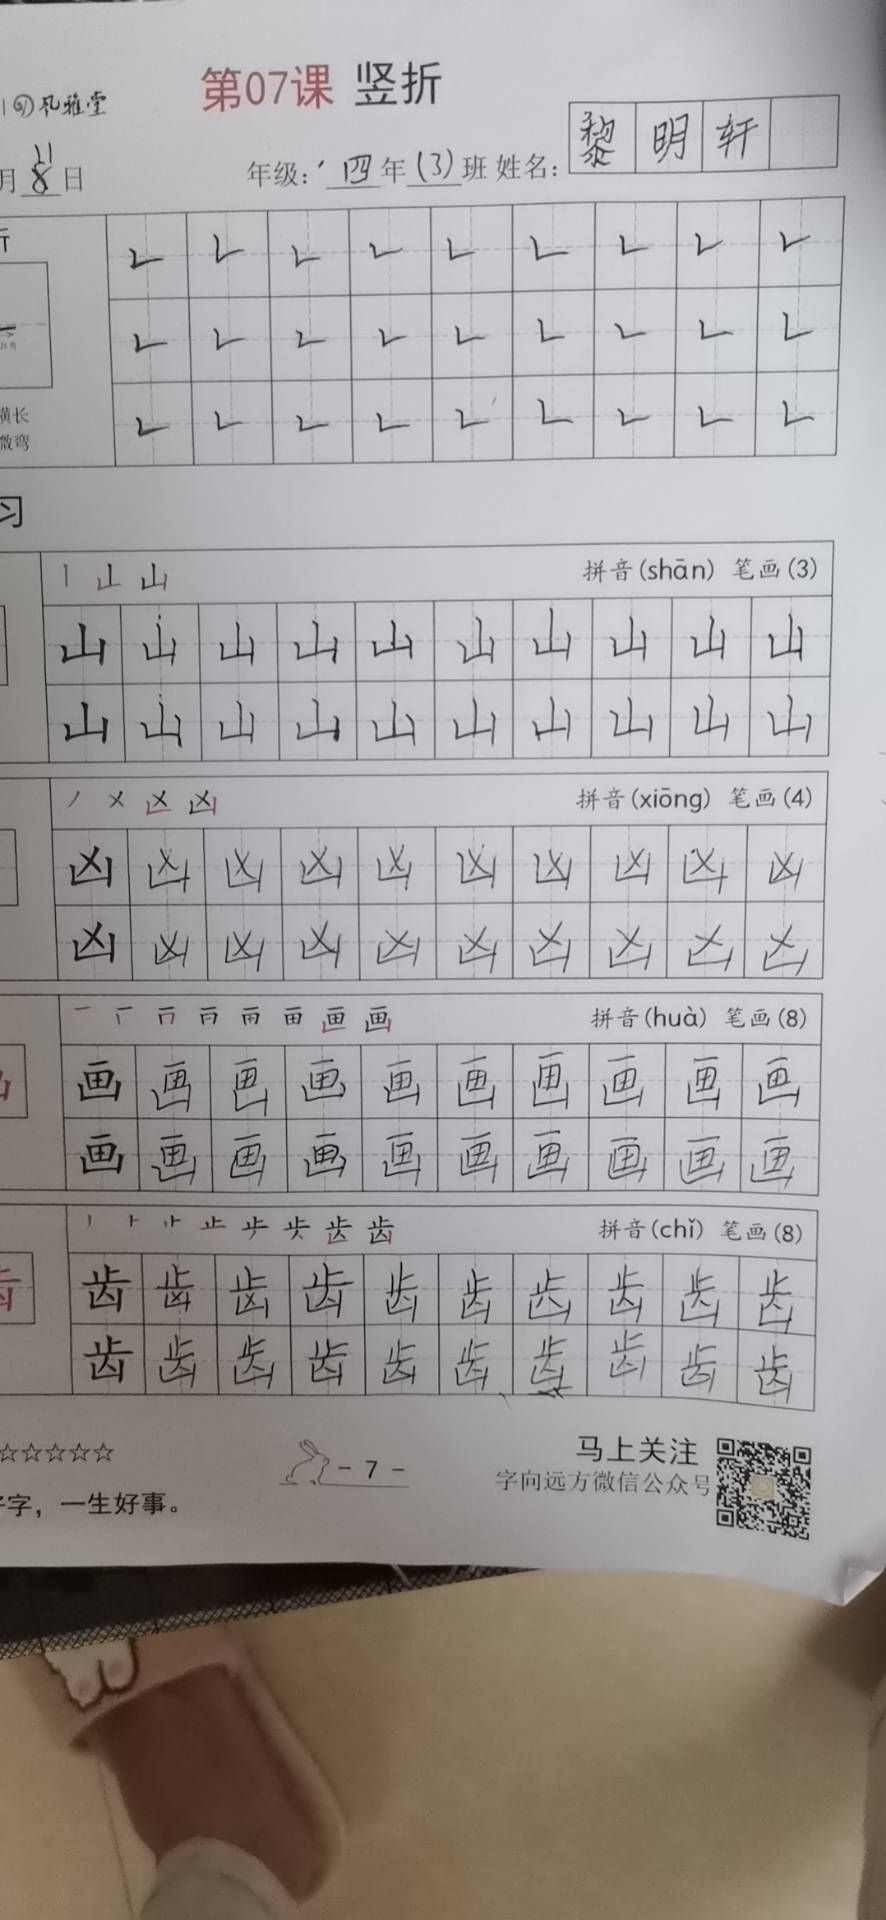 风雅堂
第07课 竖折
月8日
11
年级：四年(3)班 姓名：黎明轩
折
横长
微弯
习
拼音(shān) 笔画(3)
山山山山山山山山山山
山山山山山山山山山山
拼音(xiōng) 笔画(4)
凶凶凶凶凶凶凶凶凶凶
凶凶凶凶凶凶凶凶凶凶
拼音(huà) 笔画(8)
画画画画画画画画画画
画画画画画画画画画画
拼音(chǐ) 笔画(8)
齿齿齿齿齿齿齿齿齿齿
齿齿齿齿齿齿齿齿齿齿
☆☆☆☆☆
好字，一生好事。
- 7 -
马上关注
字向远方微信公众号